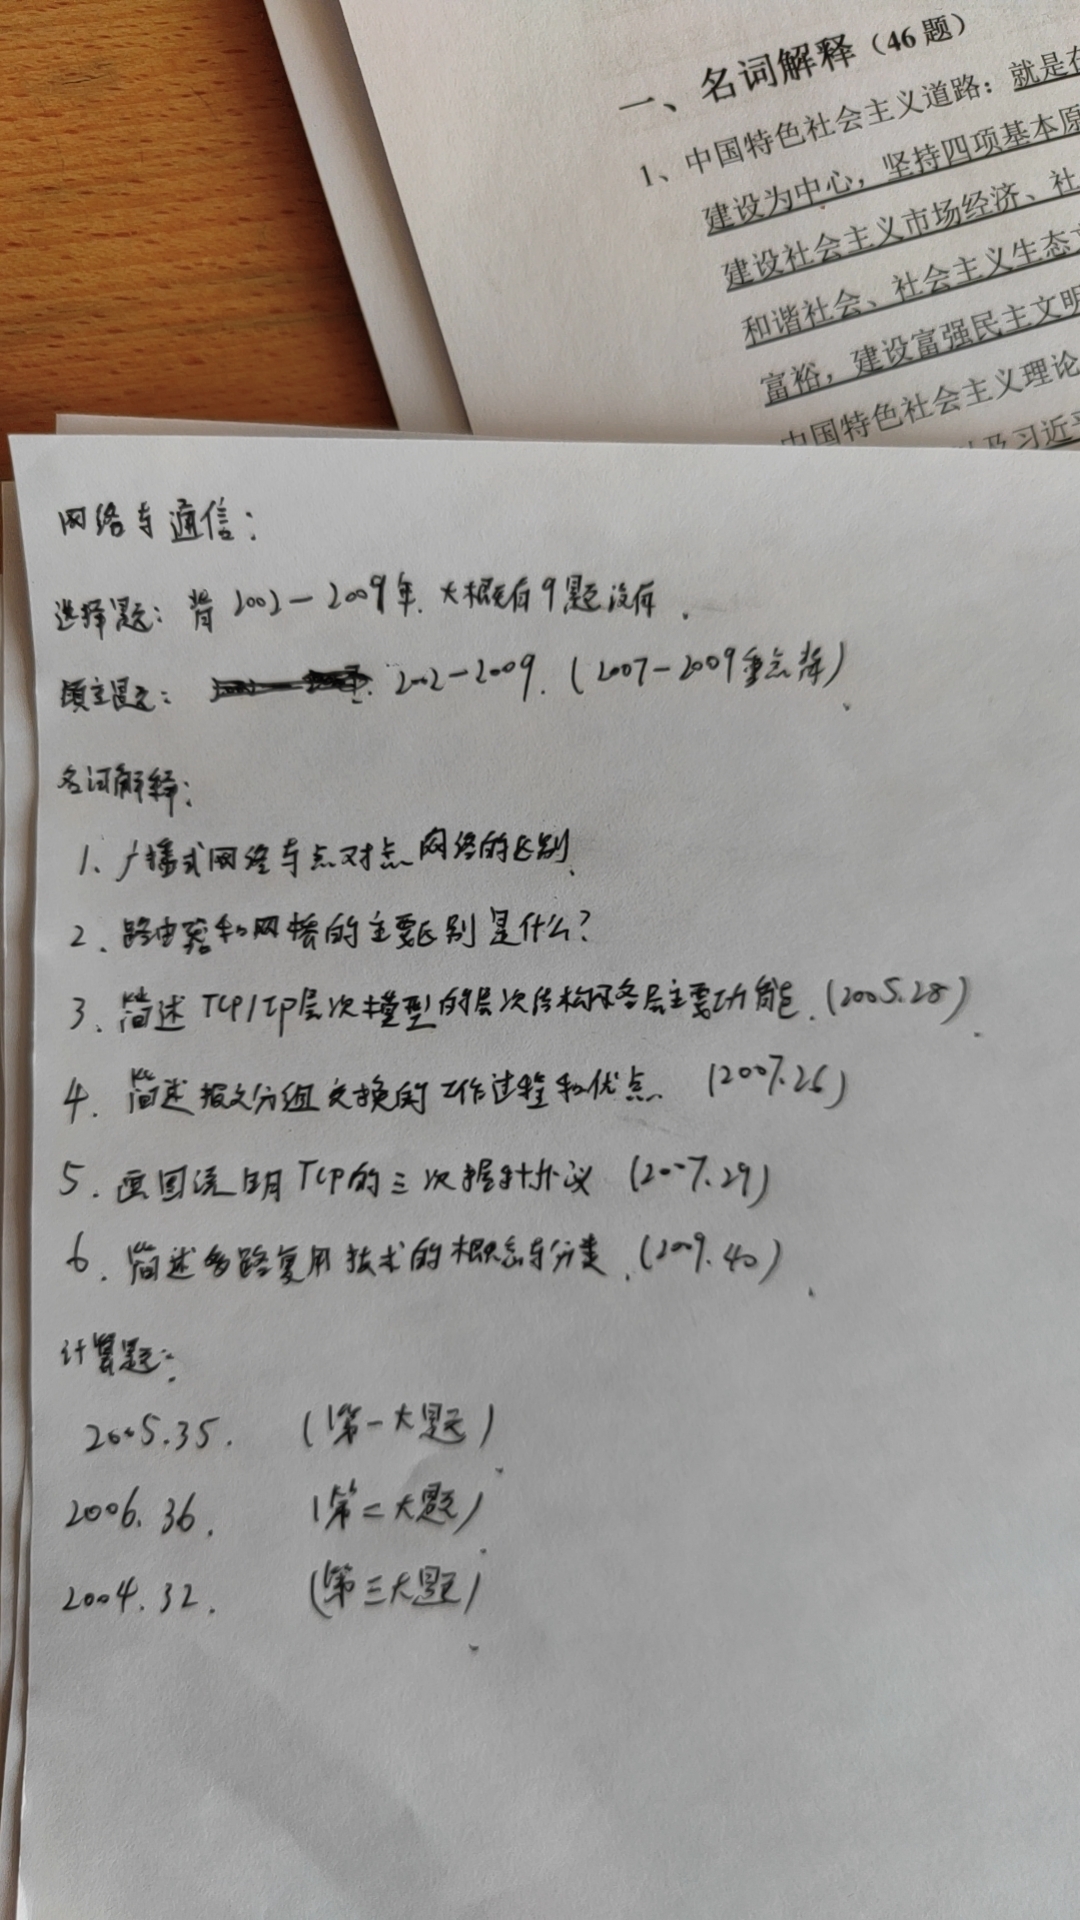 一、名词解释（46题）
1、中国特色社会主义道路：就是在
建设为中心，坚持四项基本原
建设社会主义市场经济、社
和谐社会、社会主义生态文
富裕，建设富强民主文明
中国特色社会主义理论
以及习近平
网络与通信：
选择题：背2002-2009年.大概有9题没有.
填空题：2002-2009.(2007-2009重点背)
名词解释：
1、广播式网络与点对点网络的区别.
2、路由器和网桥的主要区别是什么？
3、简述TCP/IP层次模型的层次结构及各层主要功能.(2005.28)
4、简述报文分组交换的工作过程和优点.(2007.26)
5.画图说明TCP的三次握手协议(2007.29)
6、简述多路复用技术的概念与分类.(2009.40)
计算题：
2005.35. (第一大题)
2006.36. (第二大题)
2004.32. (第三大题)